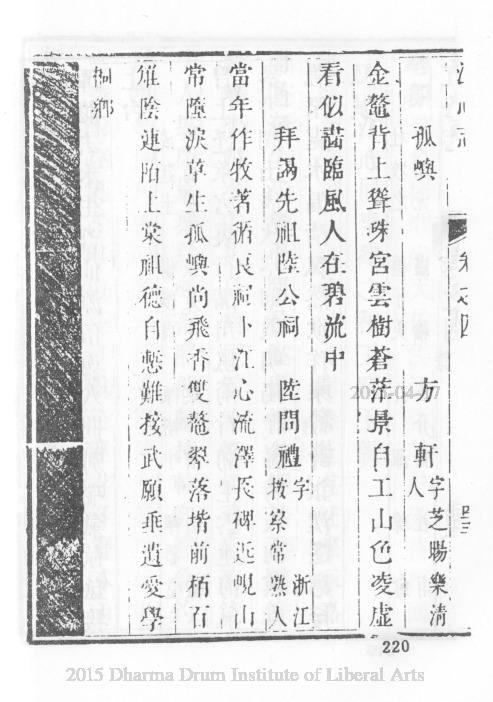 江心志
卷之四
孤嶼 方軒 字芝暘樂清人
金鼇背上聳珠宮雲樹蒼茫景自工山色凌虛
看似畫臨風人在碧流中
拜謁先祖陸公祠 陸問禮 字 浙江按察常熟人
當年作牧著循良祠卜江心流澤長碑近峴山
常墮淚草生孤嶼尚飛香雙鼇翠落堦前栢石
雄陰連陌上棠祖德自慙難技武願垂遺愛學
桐鄉
220
2015-04-
2015 Dharma Drum Institute of Liberal Arts